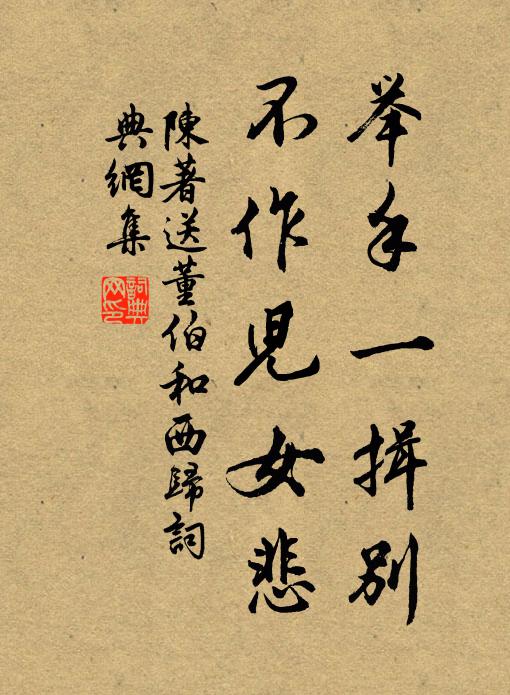 举手一揖别
不作児女悲
陳著送董伯和西歸詞
典網集
詞典
网印